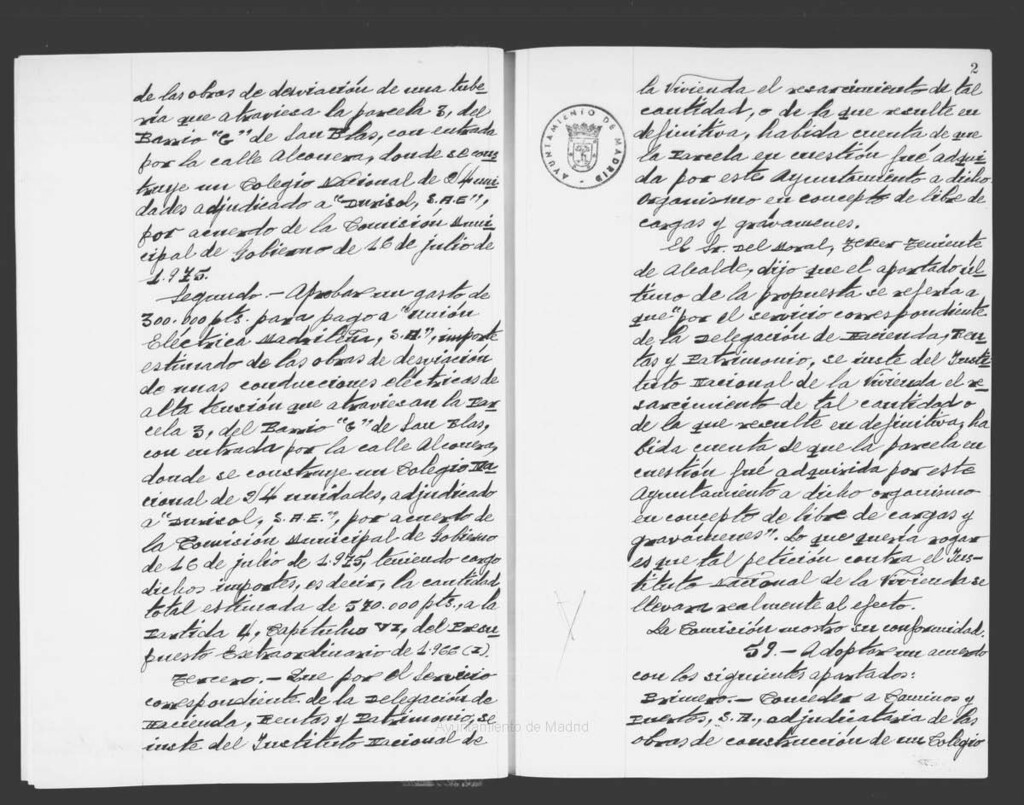 de las obras de desviación de una tube
ria que atraviesa la parcela 3, del
Barrio "G" de San Blas, con entrada
por la calle Alconera, donde se cons
truye un Colegio Nacional de 24 uni
dades adjudicado a "Durisol, S.A.E",
por acuerdo de la Comisión Muni
cipal de Gobierno de 16 de julio de
1.975.
Segundo.- Aprobar un gasto de
300.000 pts. para pago a "Unión
Eléctrica Madrileña, S.A", importe
estimado de las obras de desviación
de unas conducciones eléctricas de
alta tensión que atraviesan la Par
cela 3, del Barrio "G" de San Blas,
con entrada por la calle Alconera,
donde se construye un Colegio Na
cional de 24 unidades, adjudicado
a "Durisol, S.A.E.", por acuerdo de
la Comisión Municipal de Gobierno
de 16 de julio de 1.975, teniendo cargo
dichos importes, es decir, la cantidad
total estimada de 570.000 pts., a la
Partida 4, Capítulo VI, del Presu
puesto Extraordinario de 1.966 (I).
Tercero.- Que por el Servicio
correspondiente de la Delegación de
Hacienda, Rentas y Patrimonio, se
inste del Instituto Nacional de
2
AYUNTAMIENTO DE MADRID
la Vivienda el resarcimiento de tal
cantidad, o de la que resulte en
definitiva, habida cuenta de que
la Parcela en cuestión fué adqui
da por este Ayuntamiento a dicho
organismo en concepto de libre de
cargas y gravámenes.
El Sr. Del Moral, Tercer Teniente
de Alcalde, dijo que el apartado úl
timo de la propuesta se refería a
que "por el servicio correspondiente
de la Delegación de Hacienda, Ren
tas y Patrimonio, se inste del Insti
tuto Nacional de la Vivienda el re
sarcimiento de tal cantidad o
de la que resulte en definitiva, ha
bida cuenta de que la parcela en
cuestión fué adquirida por este
Ayuntamiento a dicho organismo
en concepto de libre de cargas y
gravámenes". Lo que quería rogar
es que tal petición contra el Ins-
tituto Nacional de la Vivienda se
llevara realmente al efecto.
La Comisión mostro su conformidad.
59.- Adoptar un acuerdo
con los siguientes apartados:
Primero.- Conceder a Caminos y
Puertos, S.A., adjudicataria de las
obras de construcción de un Colegio
Ayuntamiento de Madrid